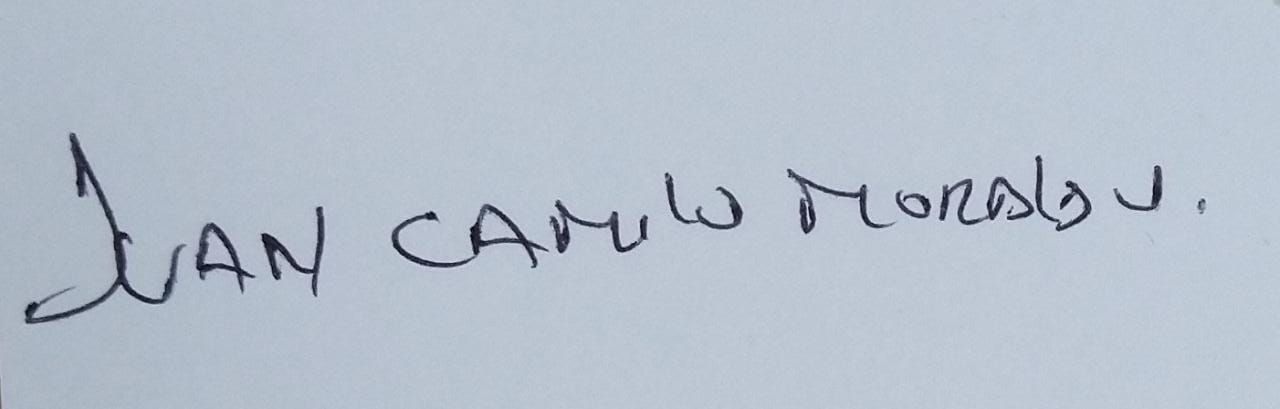 JUAN CAMILO MORALES V.